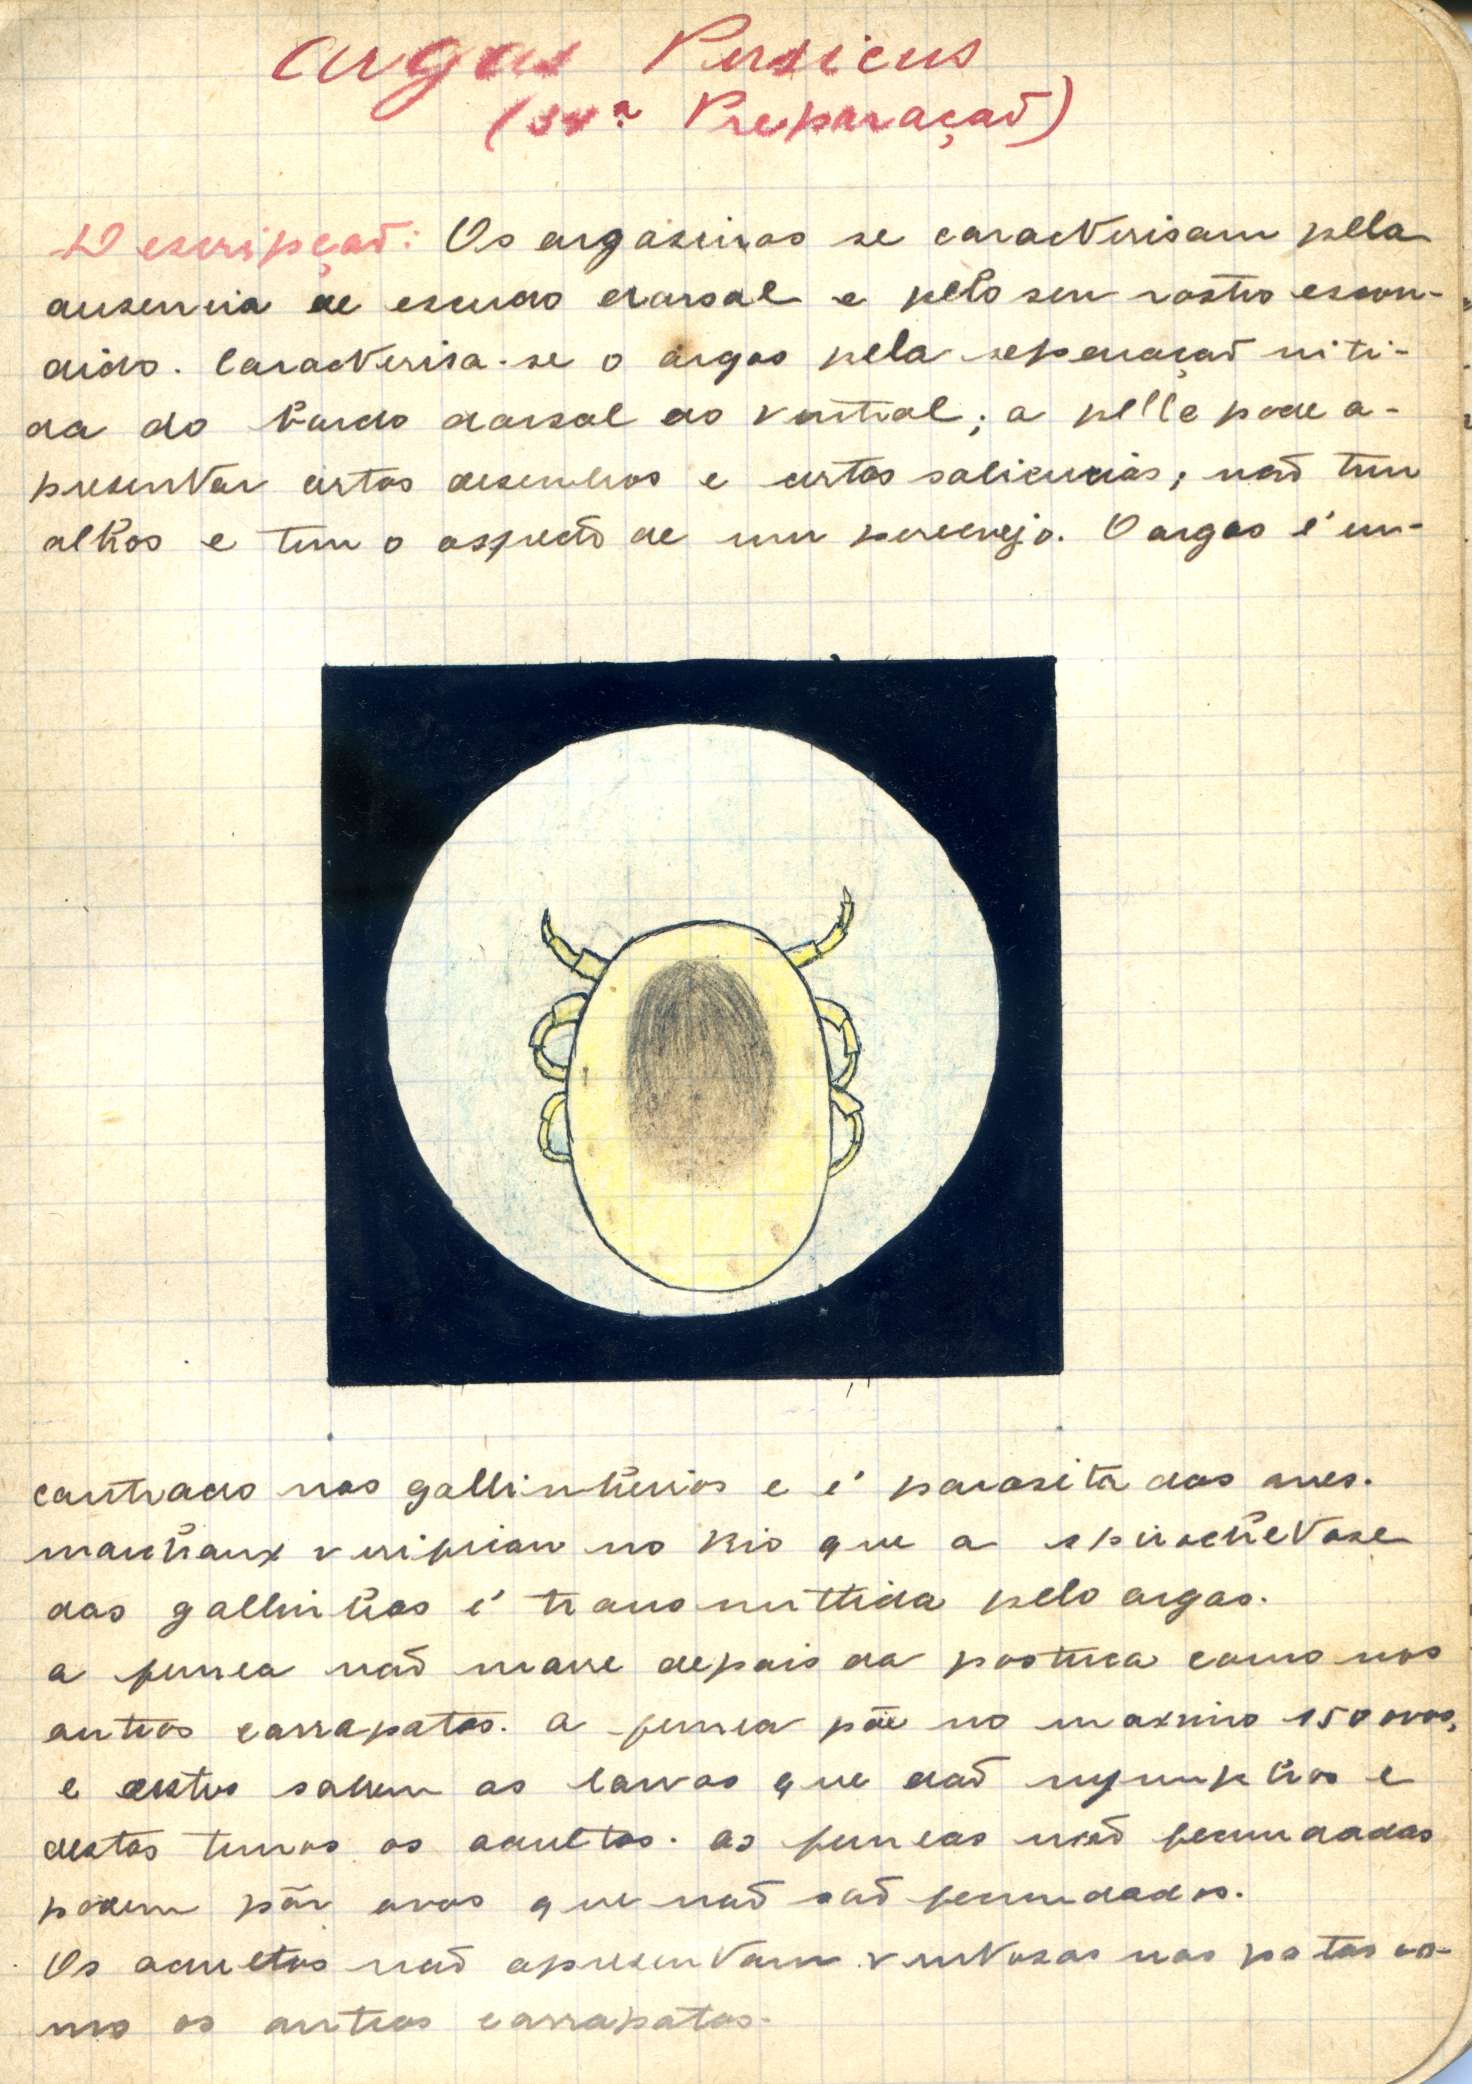 Argas Persicus
(34ª Preparação)
Descripção: Os argasinos se caracterisam pela
ausencia de escudo dorsal e pelo seu rostro escon-
dido. Caracterisa-se o argas pela separação niti-
da do bordo dorsal do ventral; a pelle pode a-
presentar certos desenhos e certas saliencias; não tem
olhos e tem o aspecto de um percevejo. O argas é en-
contrado nos gallinheiros e é parasita das aves.
Marchaux verificou no Rio que a spirochetose
das gallinhas é transmittida pelo argas.
A femea não morre depois da postura como nos
outros carrapatos. A femea põe no maximo 150 ovos,
e destes sahem as larvas que dão nymphas e
destas temos os adultos. As femeas não fecundadas
podem pôr ovos que não são fecundados.
Os adultos não apresentam ventosas nas patas co-
mo os outros carrapatos.